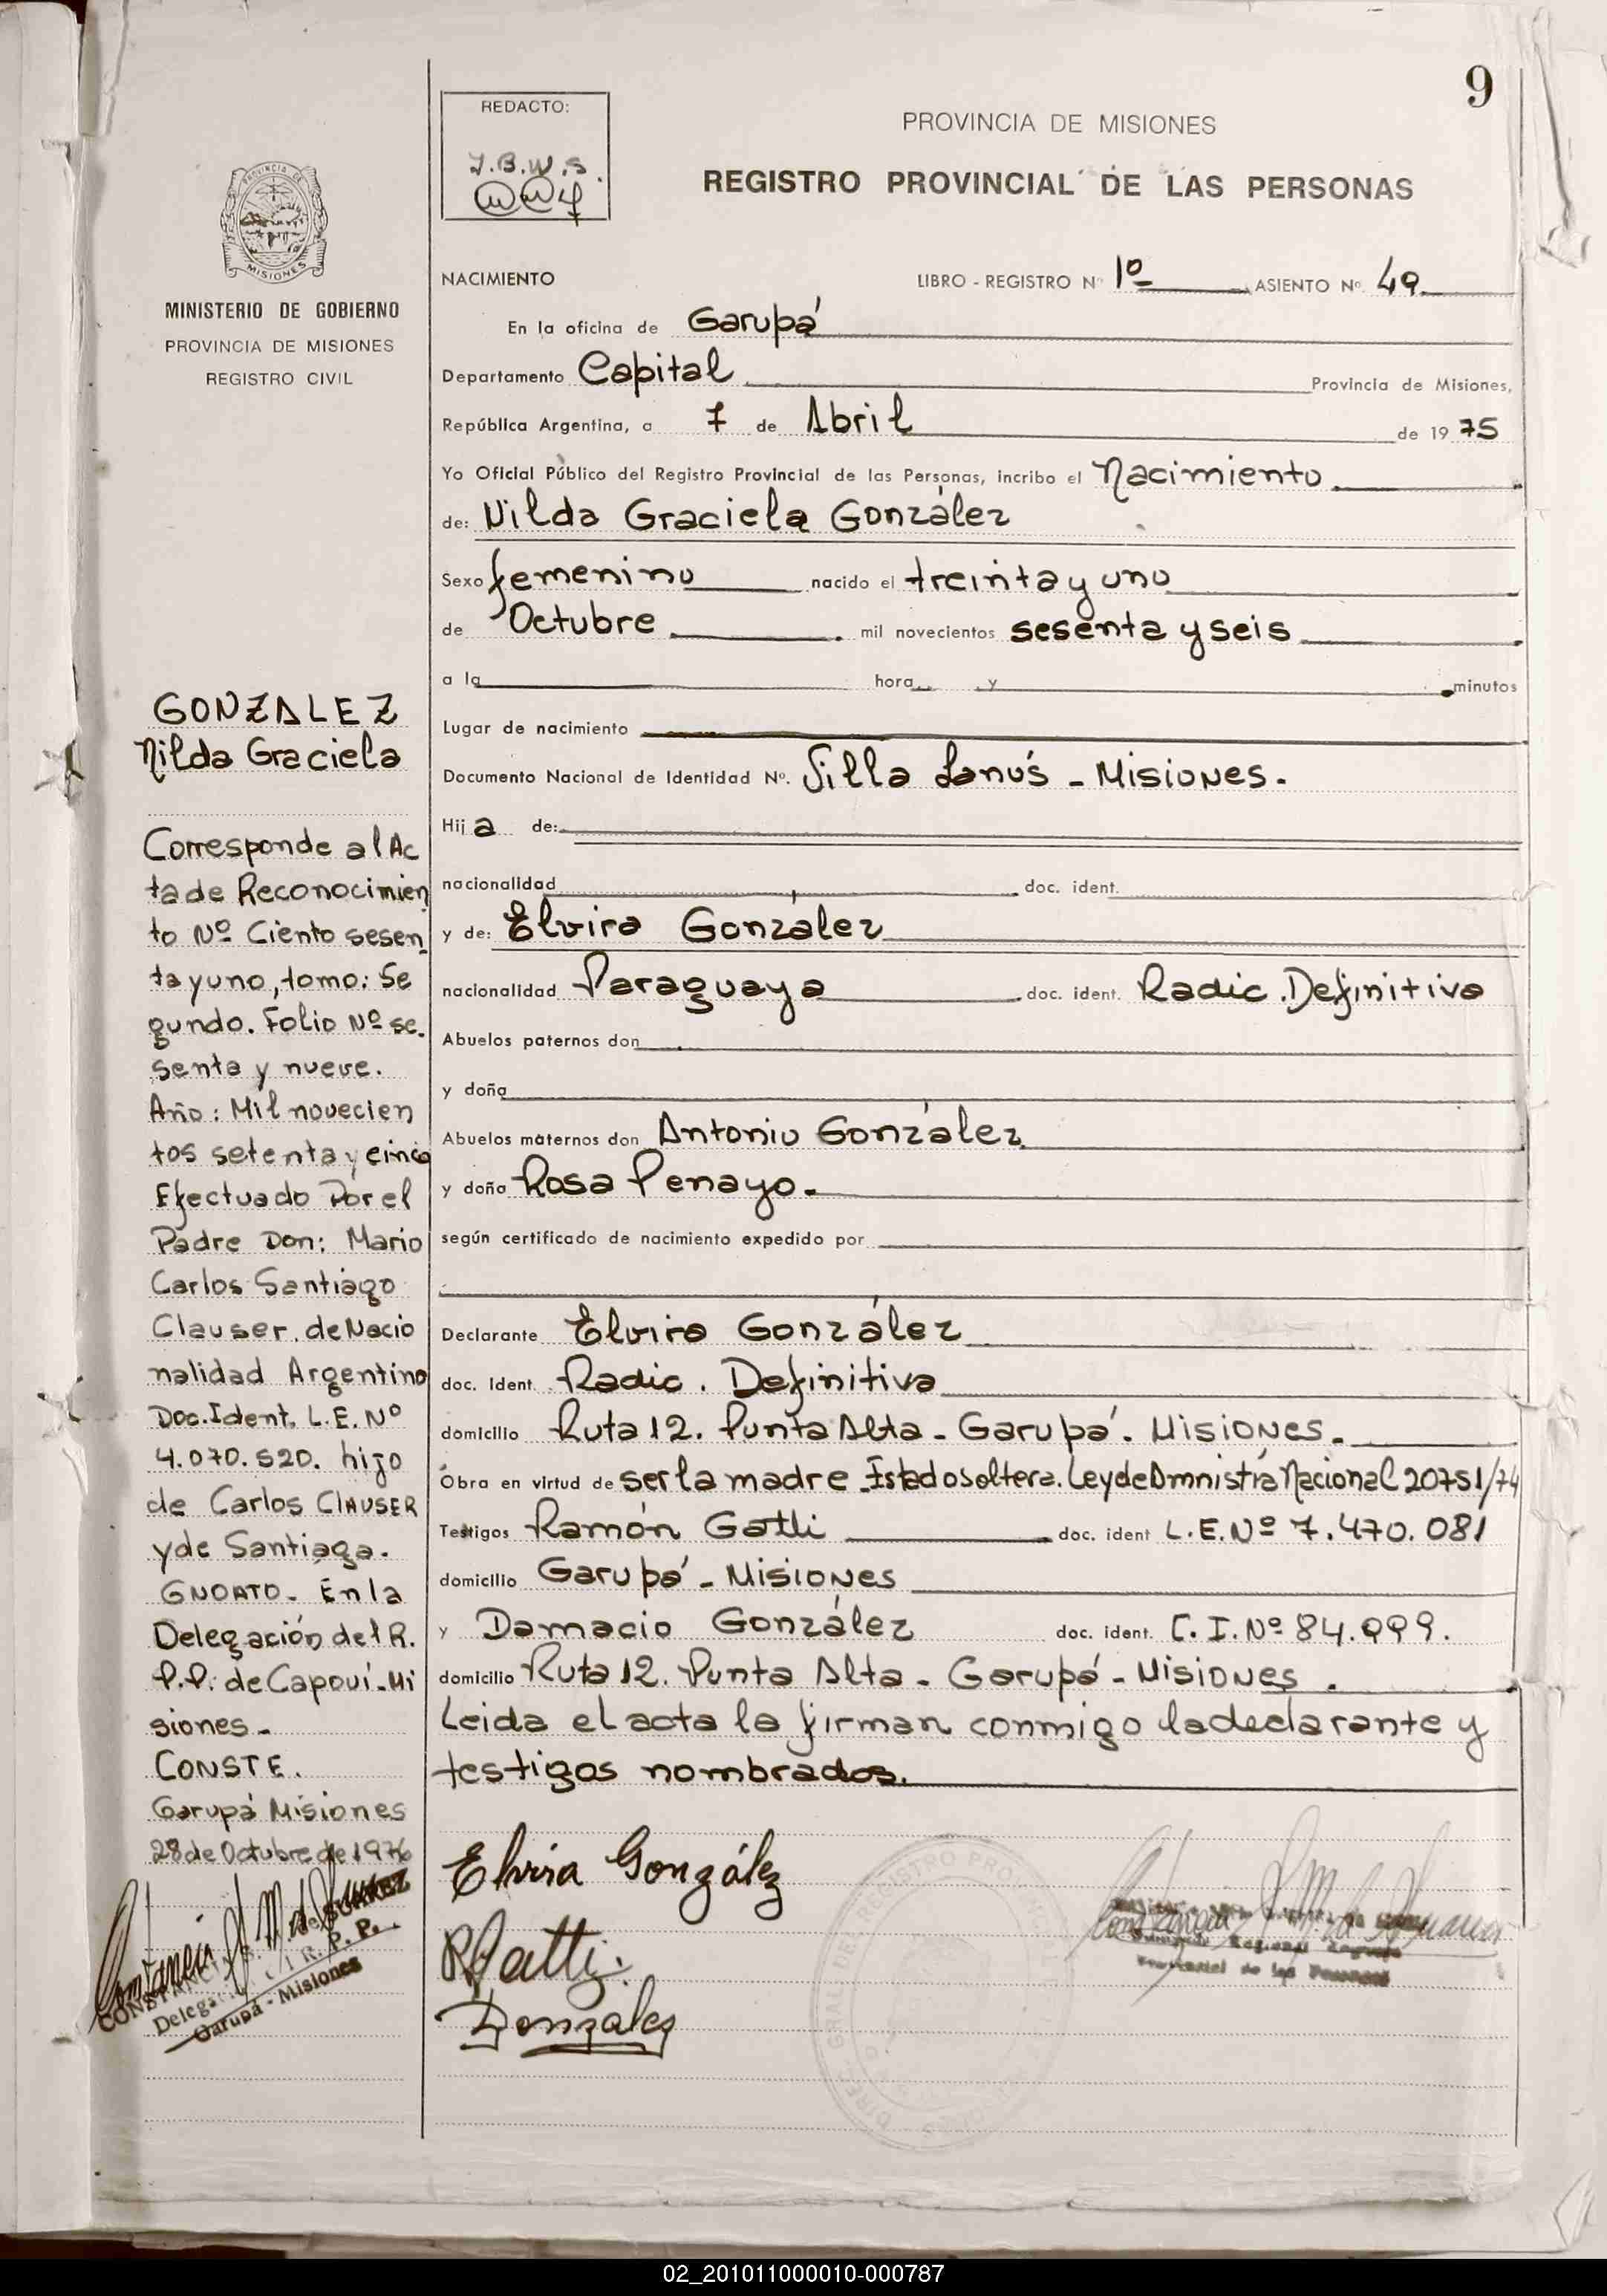 9
REDACTO:
J.B.W.S.
PROVINCIA DE MISIONES
REGISTRO PROVINCIAL DE LAS PERSONAS
PROVINCIA DE
MISIONES
MINISTERIO DE GOBIERNO
PROVINCIA DE MISIONES
REGISTRO CIVIL
GONZALEZ
Nilda Graciela
Corresponde al Ac
ta de Reconocimien
to Nº Ciento sesen
ta y uno, tomo: Se
gundo. Folio Nº se.
senta y nueve.
Año: Mil novecien
tos setenta y cinco
Efectuado Por el
Padre Don: Mario
Carlos Santiago
Clauser. de Nacio
nalidad Argentino
Doc. Ident. L.E. Nº
4.070.520. hijo
de Carlos CLAUSER
y de Santiaga.
GNOATO. En la
Delegación del R.
P.P. de Capoví-Mi
siones-
CONSTE.
Garupá Misiones
28 de Octubre de 1976
M. de SUAREZ
Garupá - Misiones
NACIMIENTO LIBRO - REGISTRO Nº 1º ASIENTO Nº 49
En la oficina de Garupá
Departamento Capital Provincia de Misiones,
República Argentina, a 7 de Abril de 1975
Yo Oficial Público del Registro Provincial de las Personas, incribo el Nacimiento
de: Nilda Graciela González
Sexo femenino nacido el treinta y uno
de Octubre mil novecientos sesenta y seis
a la hora y minutos
Lugar de nacimiento
Documento Nacional de Identidad Nº. Villa Lanús - Misiones.
Hija de:
nacionalidad doc. ident.
y de: Elvira González
nacionalidad Paraguaya doc. ident. Radic. Definitiva
Abuelos paternos don
y doña
Abuelos maternos don Antonio González
y doña Rosa Penayo.
según certificado de nacimiento expedido por
Declarante Elvira González
doc. Ident. Radic. Definitiva
domicilio Ruta 12. Punta Alta - Garupá. Misiones.
Obra en virtud de ser la madre. Estado soltera. Ley de Amnistía Nacional 20751/74
Testigos Ramón Gatti doc. ident L.E. Nº 7.470.081
domicilio Garupá - Misiones
y Damacio González doc. ident. C.I. Nº 84.999.
domicilio Ruta 12. Punta Alta - Garupá - Misiones.
Leida el acta la firman conmigo la declarante y
testigos nombrados.
Elvira González
RGatti
Gonzalez
02_201011000010-000787